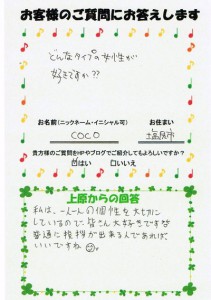 お客様のご質問にお答えします
どんなタイプの女性が
好きですか??
お名前(ニックネーム・イニシャル可)
お住まい
COCO
塩尻市
貴方様のご質問をHPやブログでご紹介してもよろしいですか?
☑はい □いいえ
上原からの回答
私は、一人一人の個性を大切に
しているので皆さん大好きですが
普通に挨拶が出来る人であれば、
いいですね